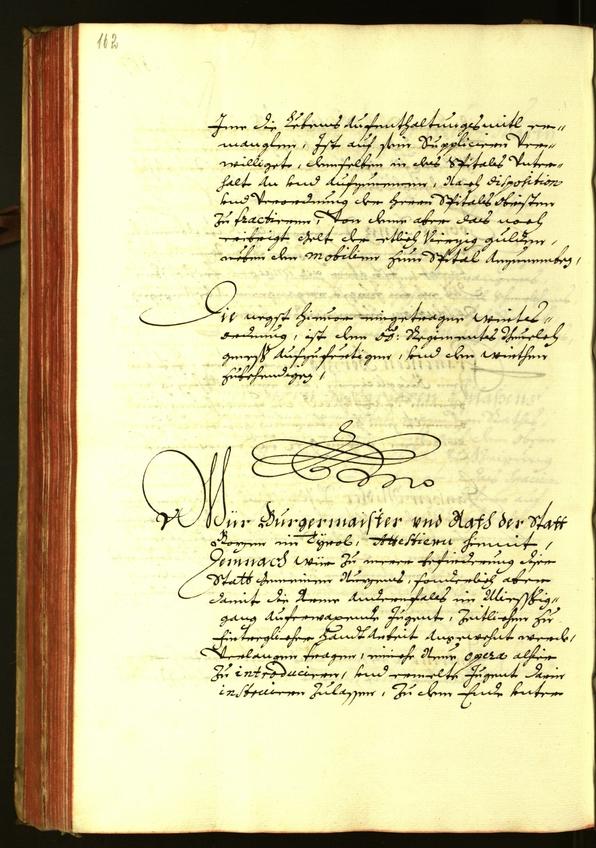 162
Ime die Lebens Aufenthaltungs mitl er-
manglen, Ist auf sein Suppliciern Ver-
williget, denselben in das Spitals Unter-
halt An und Aufzunemen, Nach disposition
und Verordnung der Herrn Spitals Obristen
zu tractieren, Von deme aber das noch
gelt der etlich Vierzig gulden,
neben den Mobilien zum Spital
Die negst hievor eingetragne wirtes-
ordnung, ist den Regiments
gemeß Aufzufertigen, und den wirthen
zubehendigen,
Wür Burgermaister und Rath der Statt
Bozen in Tyrol, Attestiern hiemit,
Demnach wür zu merer befürderung diser
Statt Gemeinen Nuzens, sonderlich aber
damit die Arme Andernfals in Miessig-
gang Auferwaxende Jugent, Zeitlichen zu
HandtArbeit Angewohnt werde,
Verlangen tragen, ein Neue opera alhie
zu introduciern, und ermelte Jugent darin
instruiren zulassen, Zu dem Ende